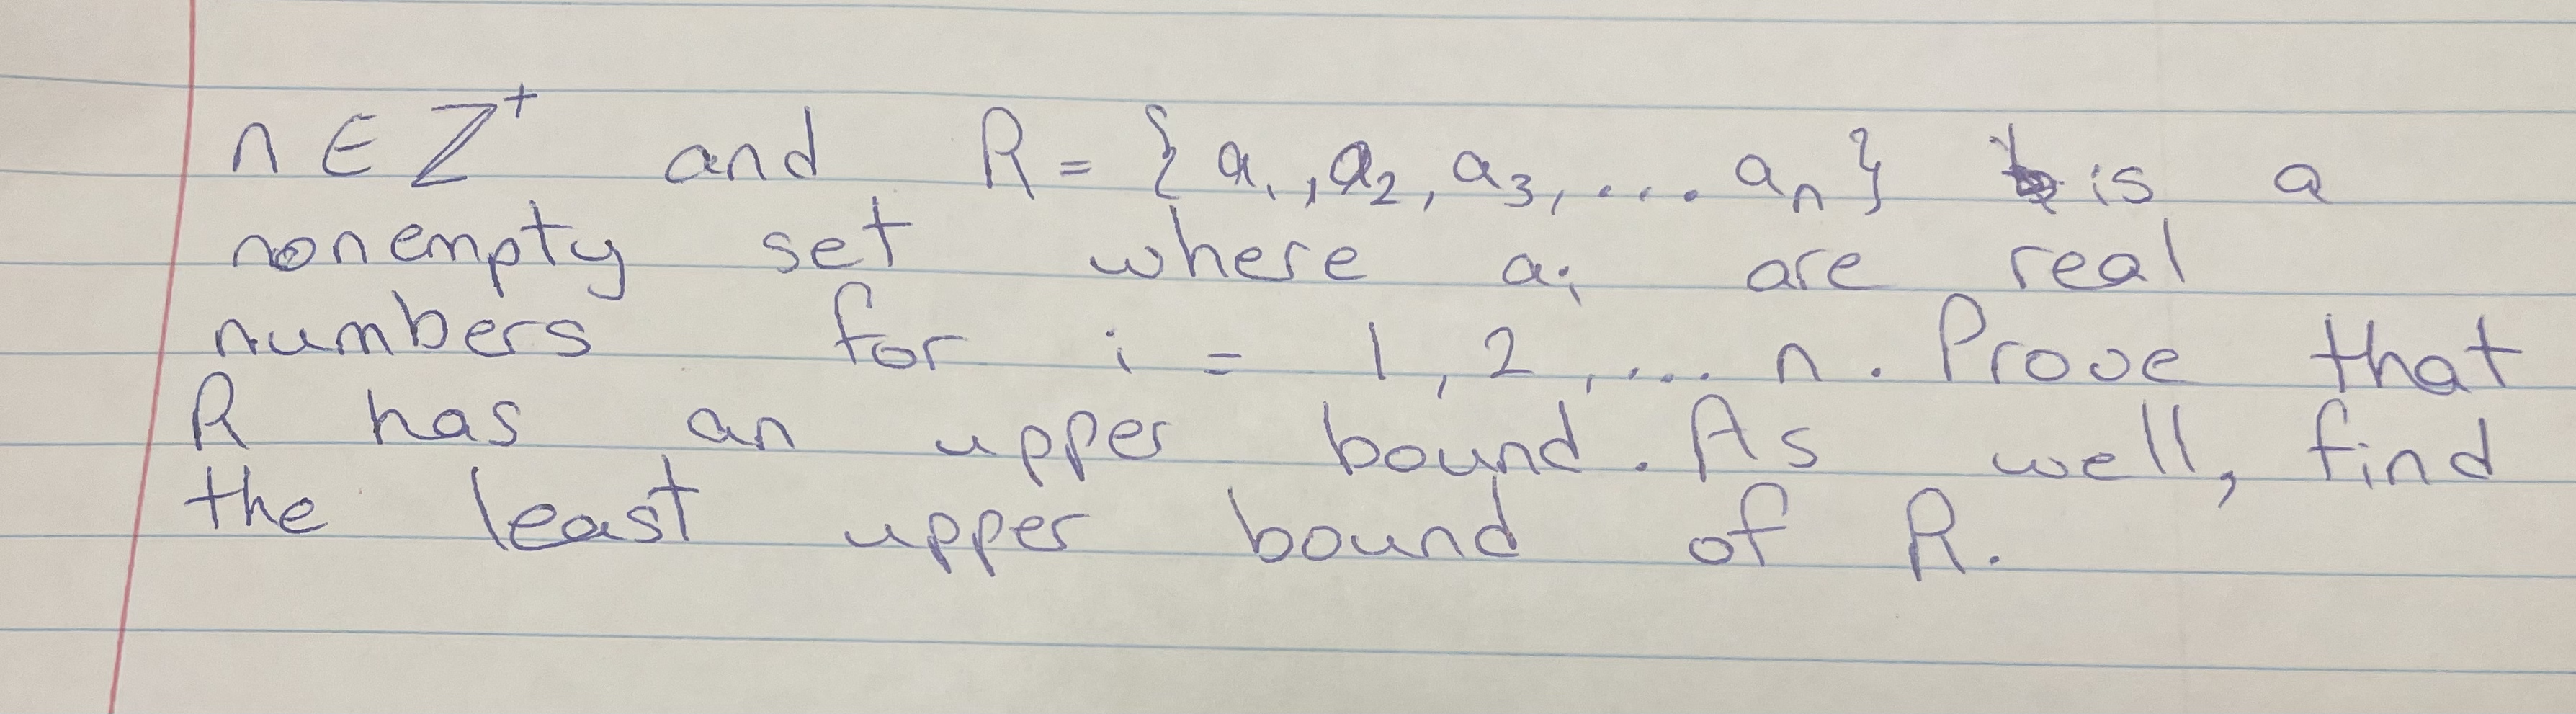 n ∈ ℤ⁺ and R = {a₁, a₂, a₃, .... aₙ} is a
nonempty set where aᵢ are real
numbers for i = 1, 2, ... n. Prove that
R has an upper bound. As well, find
the least upper bound of R.